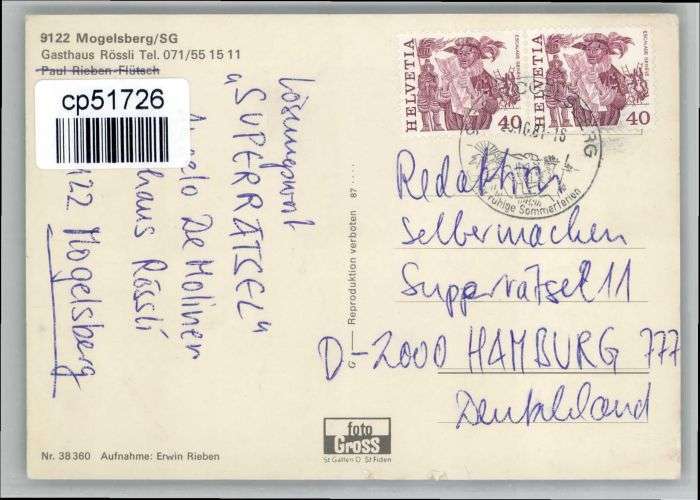 9122 Mogelsberg/SG
Gasthaus Rössli Tel. 071/55 15 11
Paul Rieben-Flütsch
cp51726
Lösungswort
"SUPERRÄTSEL"
De Moliner
Rössli
Mogelsberg
G — Reproduktion verboten 87 ....
HELVETIA
ESCALADE GENÈVE
40
HELVETIA
ESCALADE GENÈVE
40
ruhige Sommerferien
Redaktion
Selbermachen
Supperrätsel 11
D-2000 HAMBURG 777
Deutschland
foto
Gross
St Gallen O St Fiden
Nr. 38360 Aufnahme: Erwin Rieben